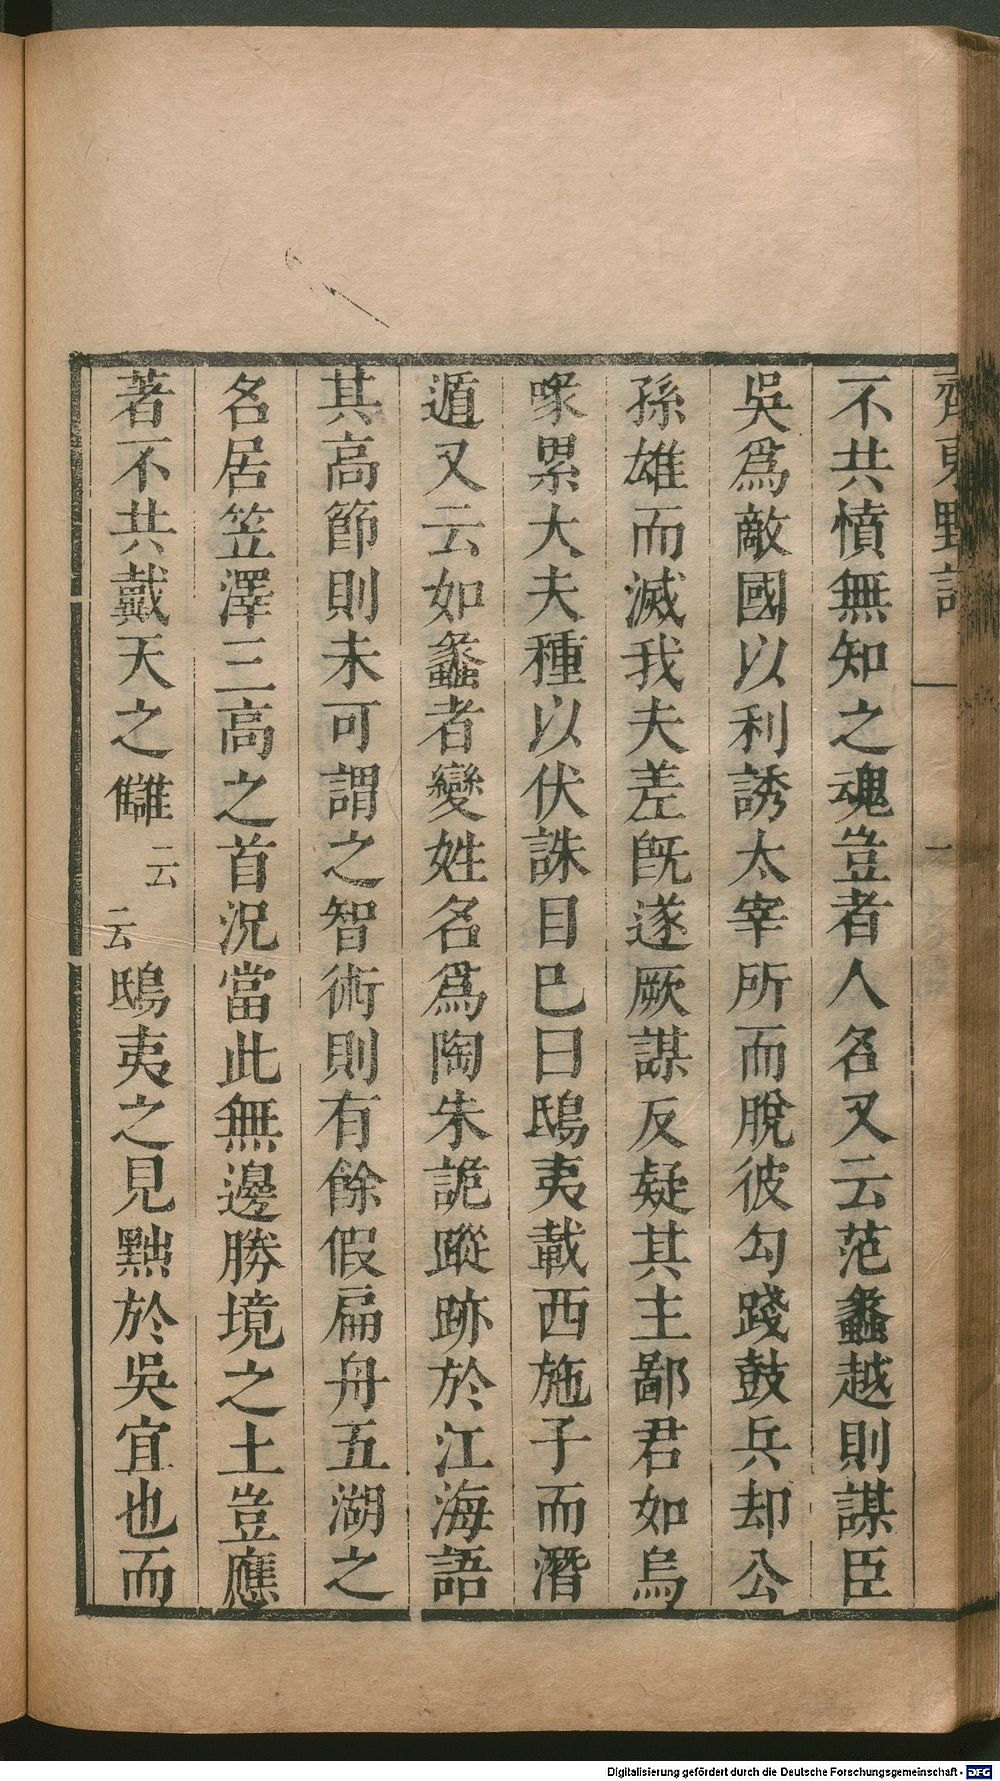 齊東野語
一
不共憤無知之魂豈者人名又云范蠡越則謀臣
吳爲敵國以利誘太宰所而脫彼勾踐鼓兵却公
孫雄而滅我夫差旣遂厥謀反疑其主鄙君如烏
喙累大夫種以伏誅目已曰鴟夷載西施子而潛
遁又云如蠡者變姓名爲陶朱詭蹤跡於江海語
其高節則未可謂之智術則有餘假扁舟五湖之
名居笠澤三高之首況當此無邊勝境之土豈應
著不共戴天之讎云云鴟夷之見黜於吳宜也而
Digitalisierung gefördert durch die Deutsche Forschungsgemeinschaft - DFG